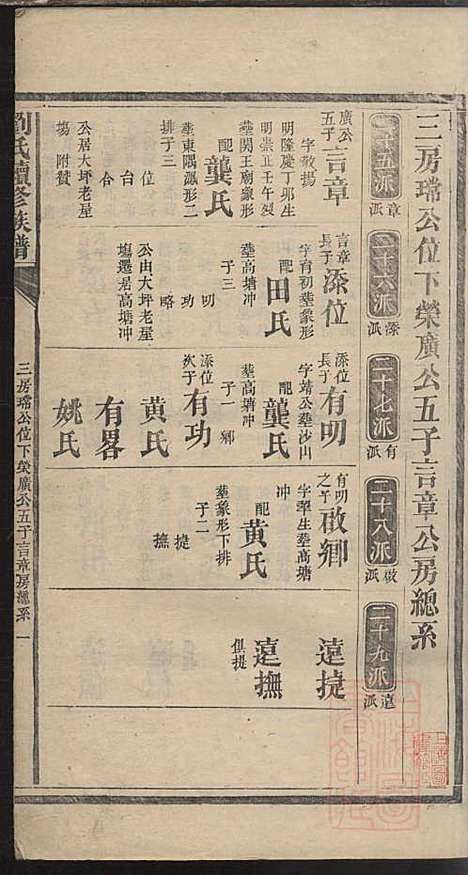 三房瑺公位下榮廣公五子言章公房總系
二十五派
章派
二十六派
添派
二十七派
有派
二十八派
啟派
二十九派
遠派
廣公五子
言章
字敬揚
明隆慶丁邜生
明崇正壬午歿
塟關王廟象形
配
龔氏
塟東隅瓢形二
排子三
位
台
合
公居大坪老屋
塲附贊
言章長子
添位
字育初塟象形
配
田氏
塟高塘冲
子三
明
功
略
公由大坪老屋
塲遷居高塘冲
添位長子
有明
字靖公塟沙山
配
龔氏
塟高塘冲
子一鄉
添位次子
有功
黄氏
有畧
姚氏
有明之子
啟卿
字犂生塟高塘
冲
配
黄氏
塟象形下排
子二
提
撫
遠提
遠撫
俱提
劉氏續修族譜
三房瑺公位下榮廣公五子言章房總系
一